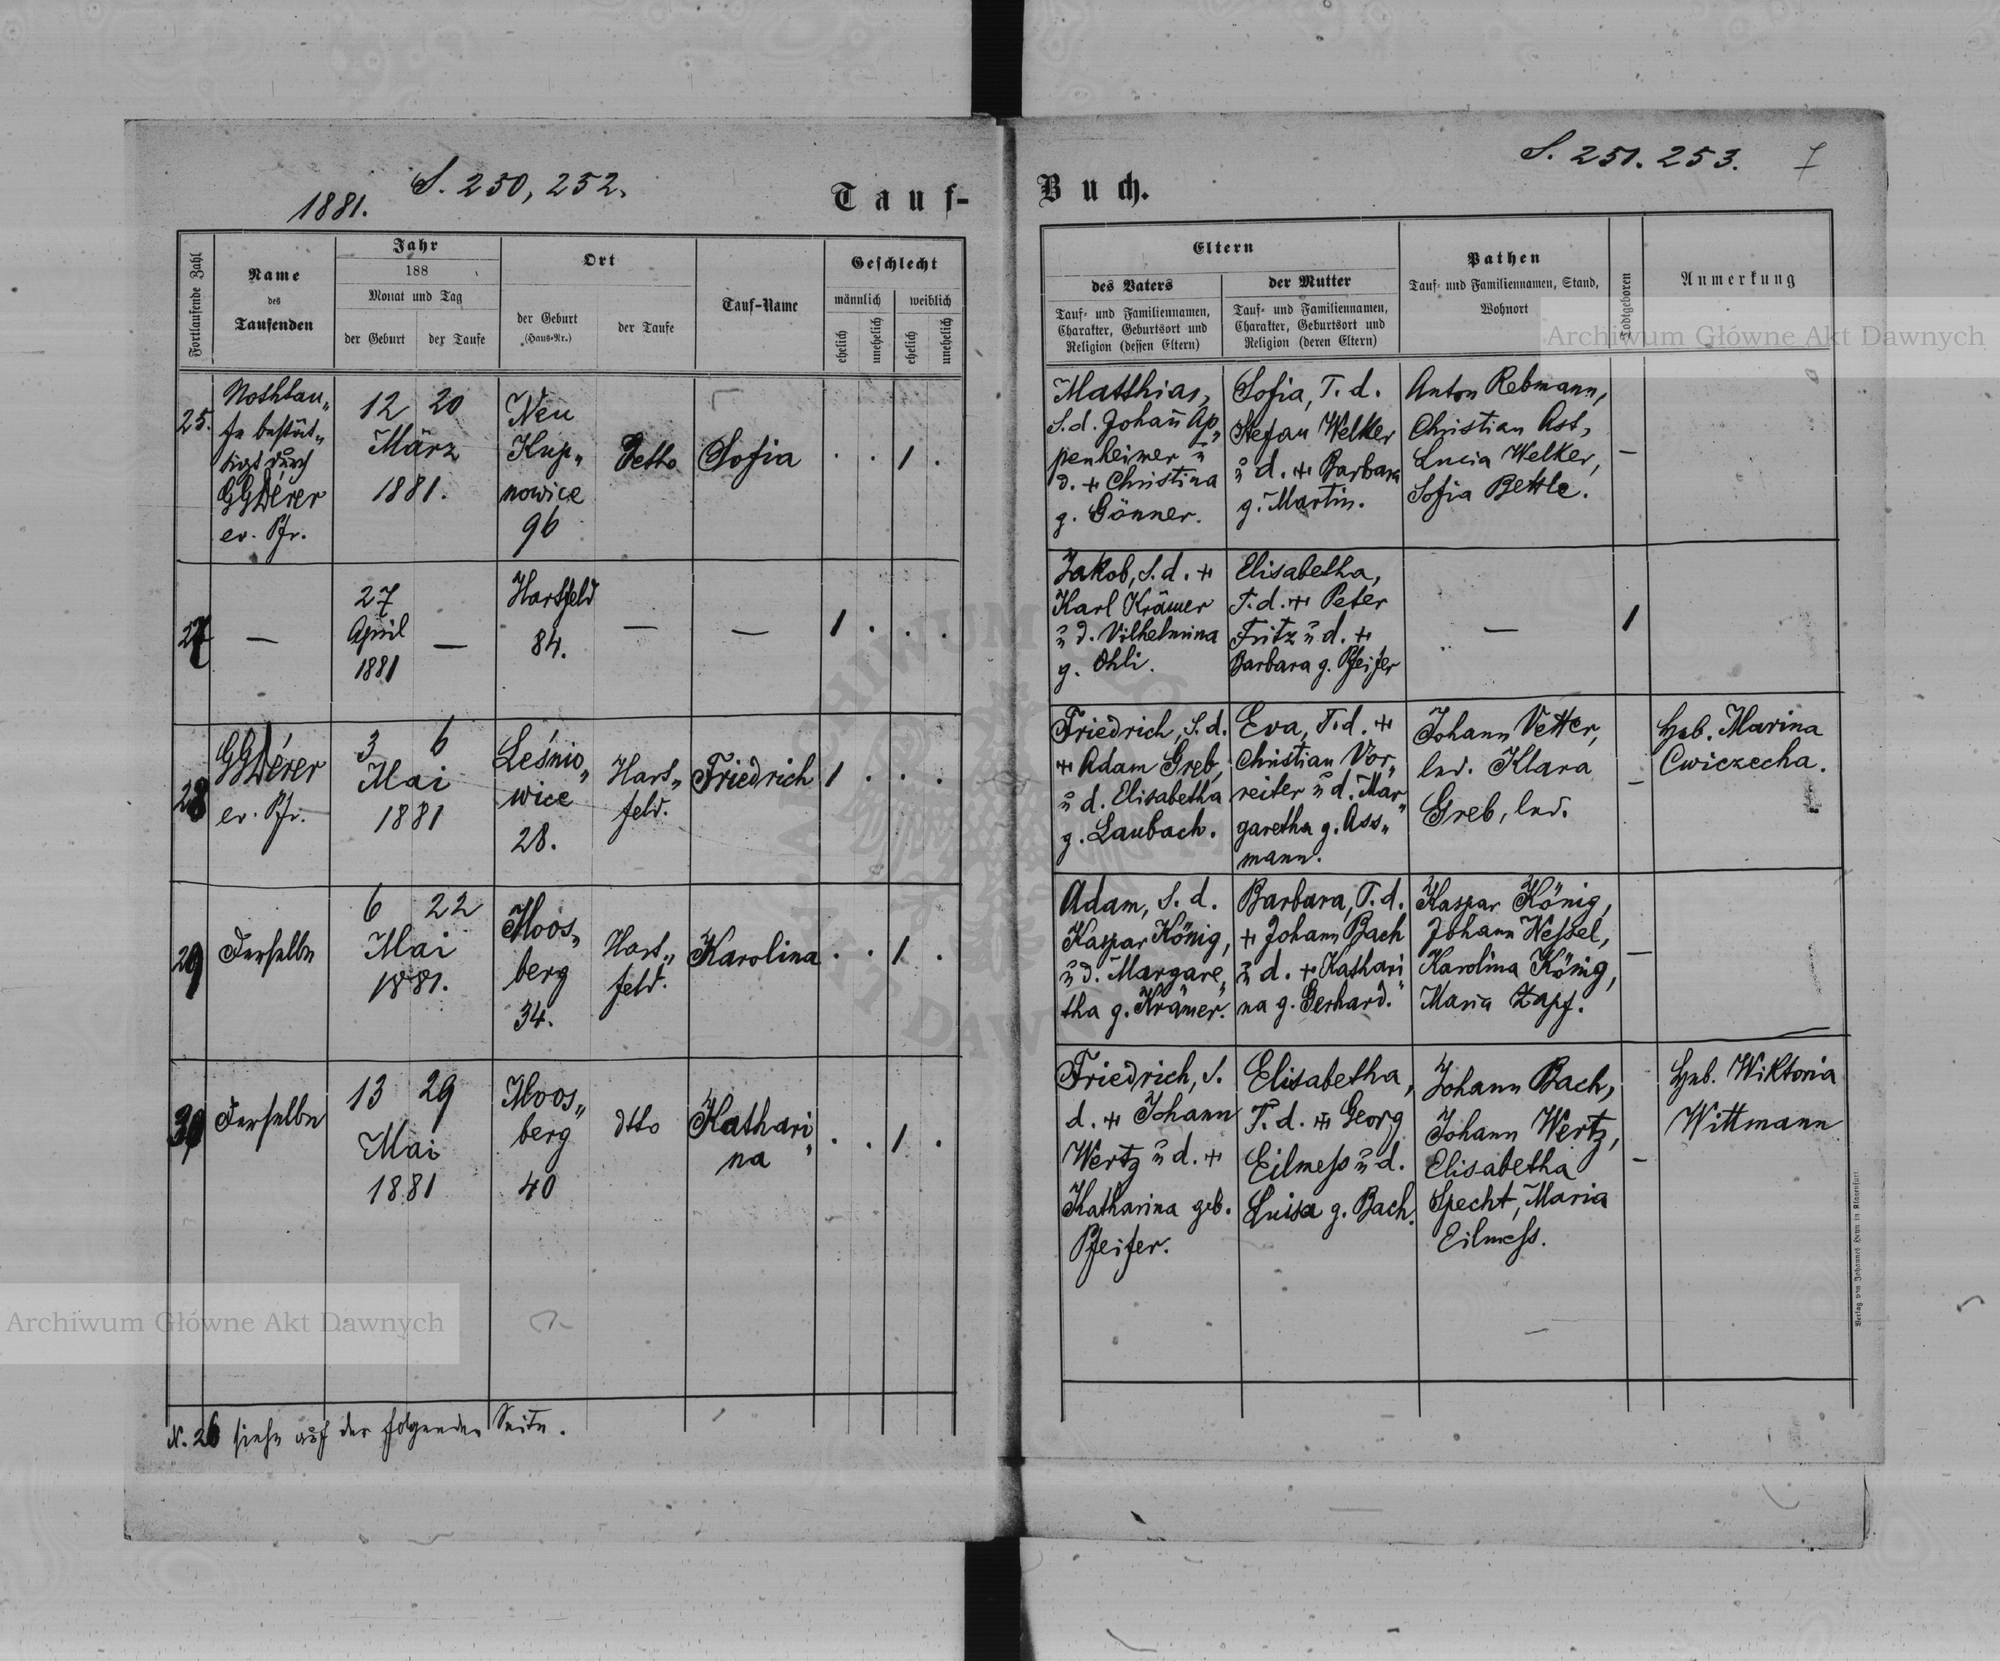 S. 250, 252.
1881.
Tauf-
Fortlaufende Zahl
Name
des
Taufenden
Jahr
188
Monat und Tag
der Geburt
der Taufe
Ort
der Geburt
(Haus-Nr.)
der Taufe
Tauf-Name
Geschlecht
männlich
weiblich
ehelich
unehelich
ehelich
unehelich
25.
Nothtau„
fe bestät„
tigt durch
GGDérer
ev. Pfr.
12 20
März
1881.
Neu
Kup„
nowice
96
Detto
Sofia
. . 1 .
27
—
27
April
1881
—
Hartfeld
84.
—
—
1 . . .
28
GGDérer
ev. Pfr.
3 6
Mai
1881
Leśnio„
wice
28.
Hart„
feld.
Friedrich
1 . . .
29
Derselbe
6 22
Mai
1881.
Moos„
berg
34.
Hart„
feld.
Karolina
. . 1 .
30
Derselbe
13 29
Mai
1881
Moos„
berg
40
dtto
Kathari„
na
. . 1 .
N. 26 siehe auf der folgenden Seite.
S. 251. 253.
7
Buch.
Eltern
des Vaters
Tauf- und Familiennamen,
Charakter, Geburtsort und
Religion (dessen Eltern)
der Mutter
Tauf- und Familiennamen,
Charakter, Geburtsort und
Religion (deren Eltern)
Pathen
Tauf- und Familiennamen, Stand,
Wohnort
Todtgeboren
Anmerkung
Matthias,
S. d. Johañ Ap„
penheimer ū
d. + Christina
g. Gönner.
Sofia, T. d.
Stefan Welker
ū d. + Barbara
g. Martin.
Anton Rebmann,
Christian Ast,
Lucia Welker,
Sofia Bettle.
—
Jakob, S. d. +
Karl Krämer
ū d. Vilhelmina
g. Ohli.
Elisabetha,
T. d. + Peter
Fritz ū d. +
Barbara g. Pfeifer
—
1
Friedrich, S. d.
+ Adam Greb,
ū d. Elisabetha
g. Laubach.
Eva, T. d. +
Christian Vor„
reiter ū d. Mar„
garetha g. Ass„
mann.
Johann Vetter,
led. Klara
Greb, led.
—
Heb. Marina
Cwiczecha.
Adam, S. d.
Kaspar König,
ū d. Margare„
tha g. Krämer.
Barbara, T. d.
+ Johann Bach
ū d. + Kathari„
na g. Gerhard.
Kaspar König,
Johann Wessel,
Karolina König,
Maria Zapf.
—
Friedrich, S.
d. + Johann
Wertz ū d. +
Katharina geb.
Pfeifer.
Elisabetha,
T. d. + Georg
Eilmess ū d.
Luisa g. Bach.
Johann Bach,
Johann Wertz,
Elisabetha
Specht, Maria
Eilmess.
—
Heb. Wiktoria
Wittmann
Verlag von Johannes Heyn in Klagenfurt
Archiwum Główne Akt Dawnych
Archiwum Główne Akt Dawnych